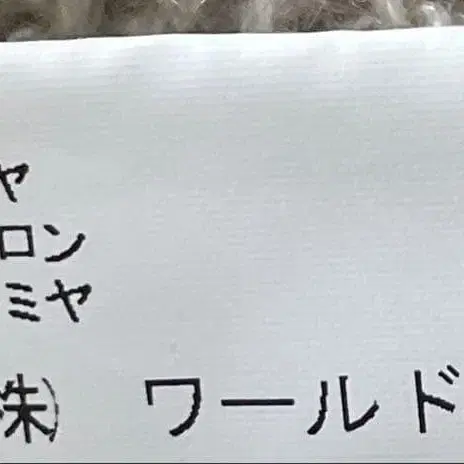 ヤ
ロン
ミヤ
株) ワールド